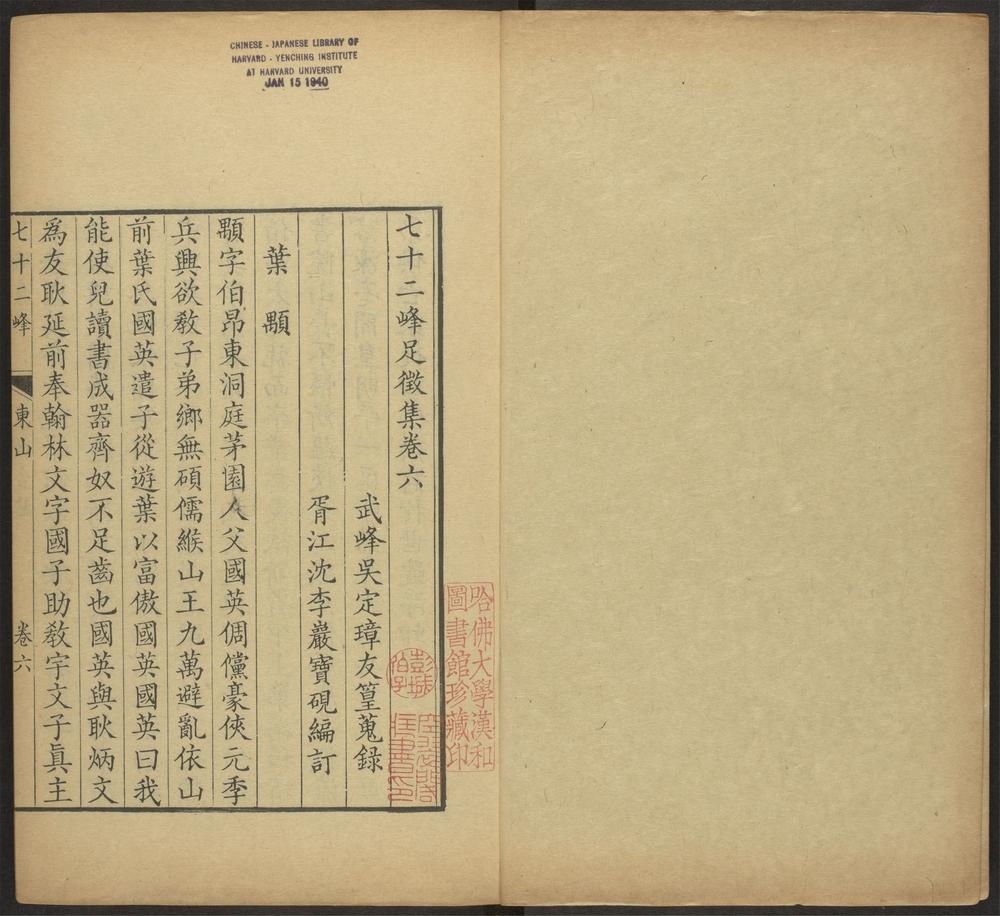 CHINESE - JAPANESE LIBRARY OF
HARVARD - YENCHING INSTITUTE
AT HARVARD UNIVERSITY
JAN 15 1940
七十二峰足徵集卷六
武峰吳定璋友篁蒐錄
胥江沈李巖寶硯編訂
葉顒
顒字伯昂東洞庭茅園人父國英倜儻豪俠元季
兵興欲教子弟鄉無碩儒緱山王九萬避亂依山
前葉氏國英遣子從遊葉以富傲國英國英曰我
能使兒讀書成器齊奴不足齒也國英與耿炳文
爲友耿延前奉翰林文字國子助教宇文子眞主
七十二峰 東山 卷六
哈佛大學漢和
圖書館珍藏印
彭城